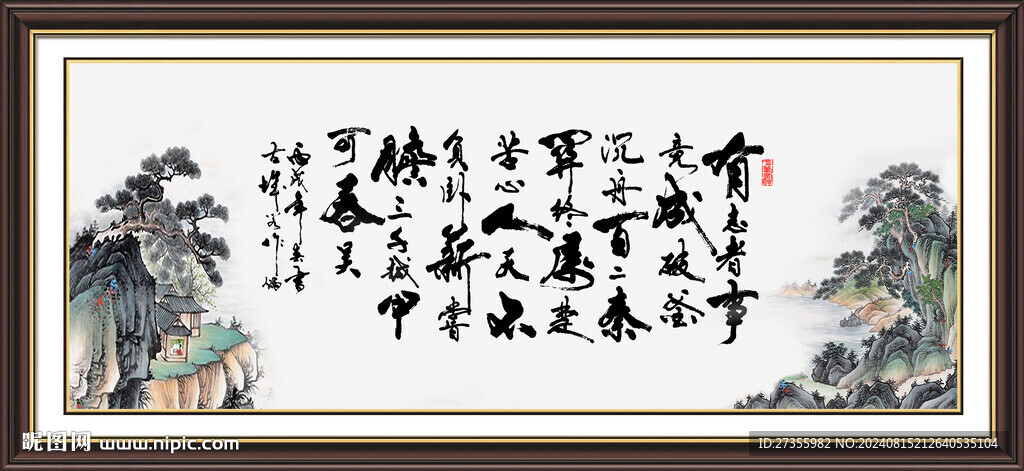 有志者事
竟成破釜
沉舟百二秦
關终屬楚
苦心人天不
負卧薪嘗
膽三千越甲
可吞吴
丙戌年春書
昵图网 www.nipic.com
ID:27355982 NO:20240815212640535104